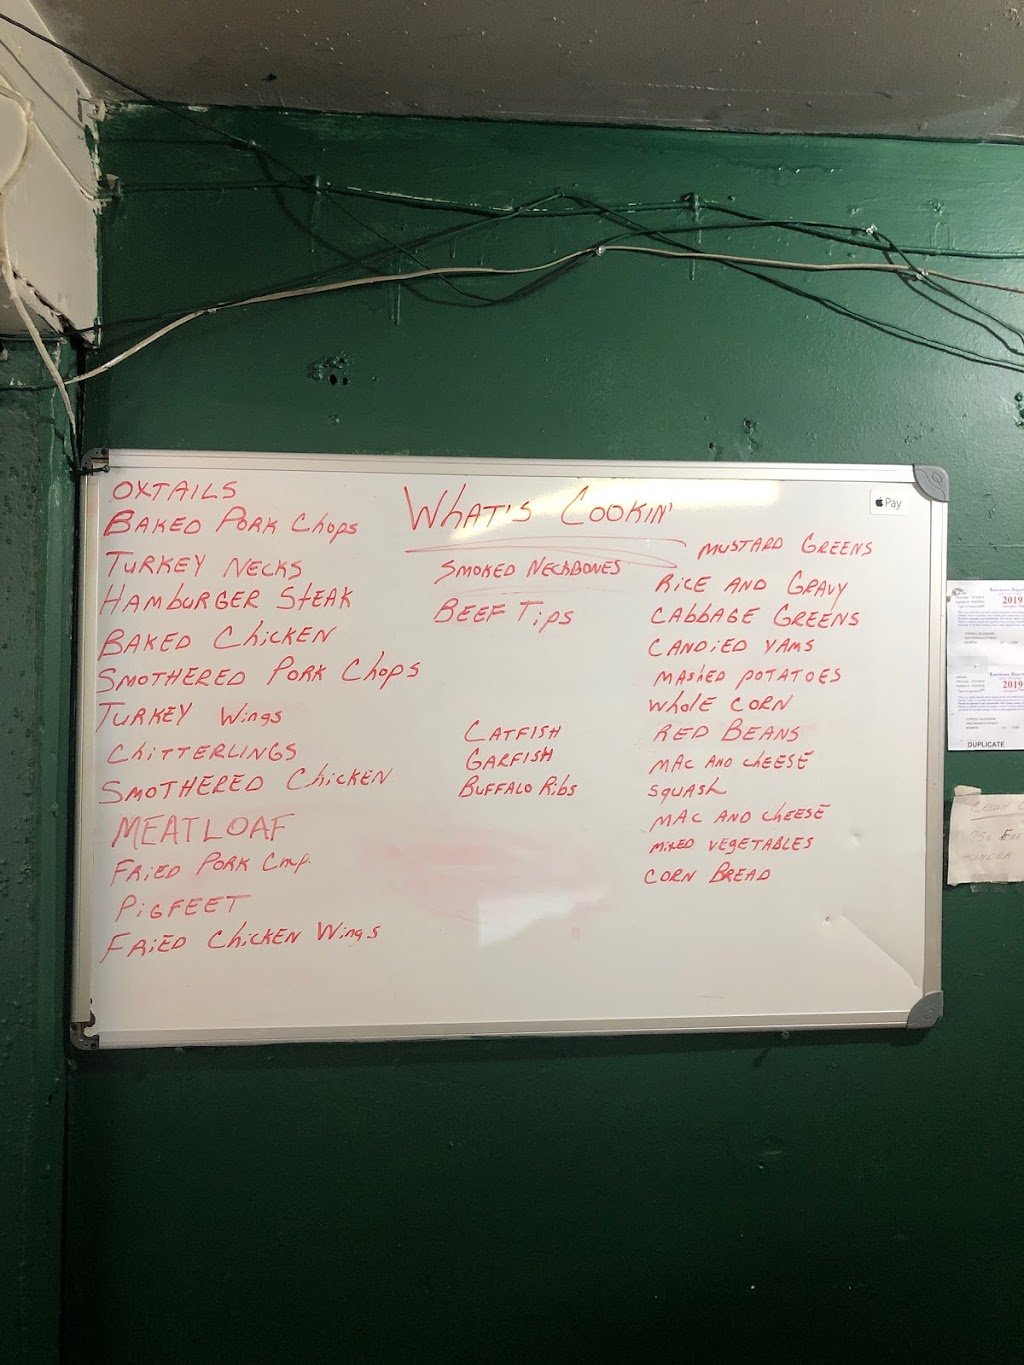 OXTAILS
BAKED PORK Chops
TURKEY NECKS
HAMBURGER STEAK
BAKED ChiCKEN
SMOTHERED PORK Chops
TURKEY Wings
ChiTTERLINGS
SMOTHERED ChiCKEN
MEATLOAF
FRiED PORK
PiGFEET
FRiED ChiCKEN Wings
WhAT'S COOKIN'
SMOKED NECKBONES
BEEF Tips
CATFISH
GARFISH
BUFFALO RiBS
Pay
MUSTARD GREENS
RiCE AND GRAVY
CABBAGE GREENS
CANDiED YAMS
MAShED POTATOES
WhOLE CORN
RED BEANS
MAC AND ChEESE
SQUASh
MAC AND ChEESE
MiXED VEGETABLES
CORN BREAD
2019
2019
DUPLICATE